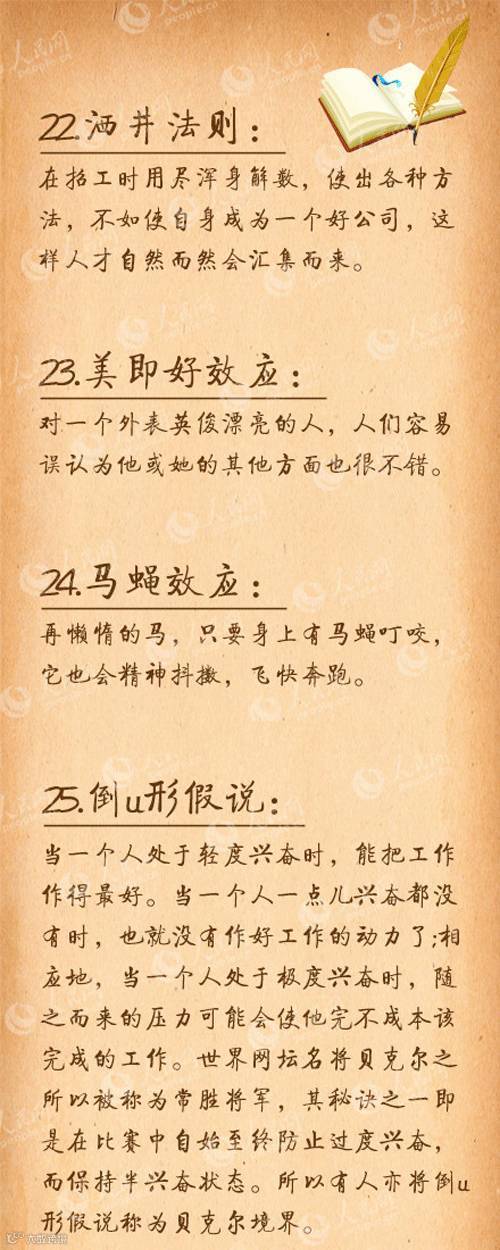 22.洒井法则：
在招工时用尽浑身解数，使出各种方
法，不如使自身成为一个好公司，这
样人才自然而然会汇集而来。
23.美即好效应：
对一个外表英俊漂亮的人，人们容易
误认为他或她的其他方面也很不错。
24.马蝇效应：
再懒惰的马，只要身上有马蝇叮咬，
它也会精神抖擞，飞快奔跑。
25.倒u形假说：
当一个人处于轻度兴奋时，能把工作
作得最好。当一个人一点儿兴奋都没
有时，也就没有作好工作的动力了;相
应地，当一个人处于极度兴奋时，随
之而来的压力可能会使他完不成本该
完成的工作。世界网坛名将贝克尔之
所以被称为常胜将军，其秘诀之一即
是在比赛中自始至终防止过度兴奋，
而保持半兴奋状态。所以有人亦将倒u
形假说称为贝克尔境界。
人民网
people.cn